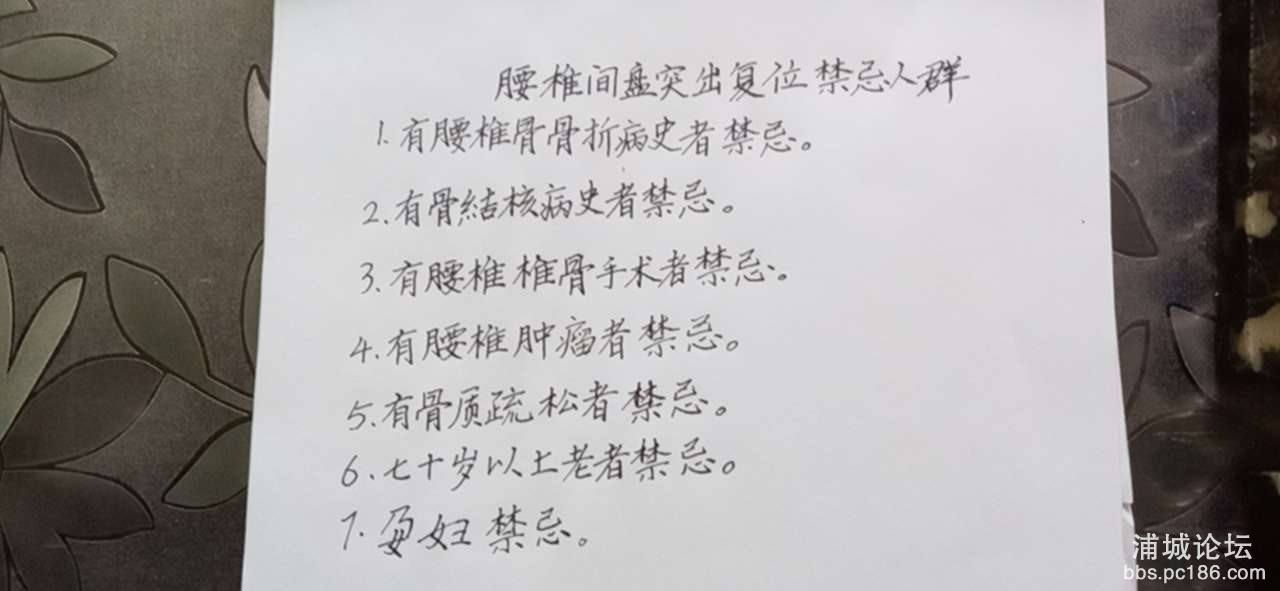 腰椎间盘突出复位禁忌人群
1.有腰椎骨骨折病史者禁忌。
2.有骨结核病史者禁忌。
3.有腰椎椎骨手术者禁忌。
4.有腰椎肿瘤者禁忌。
5.有骨质疏松者禁忌。
6.七十岁以上老者禁忌。
7.孕妇禁忌。
浦城论坛
bbs.pc186.com